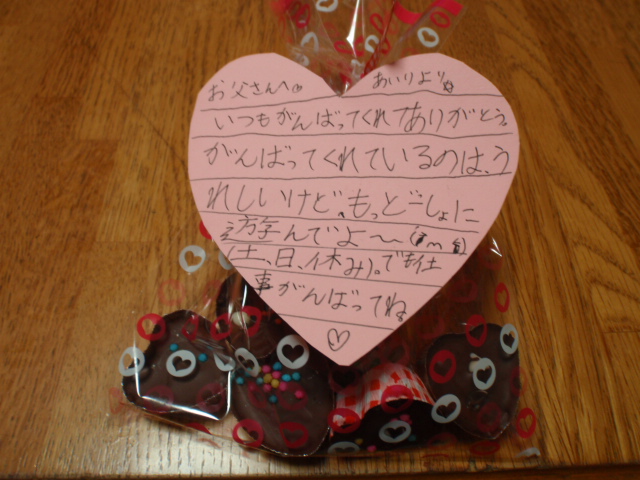 お父さんへ。 あいりより
いつもがんばってくれてありがとう。
がんばってくれているのは、う
れしいけど、もっとごしょに
遊んでよ〜
(土、日、休み)。でも仕
事がんばってね。